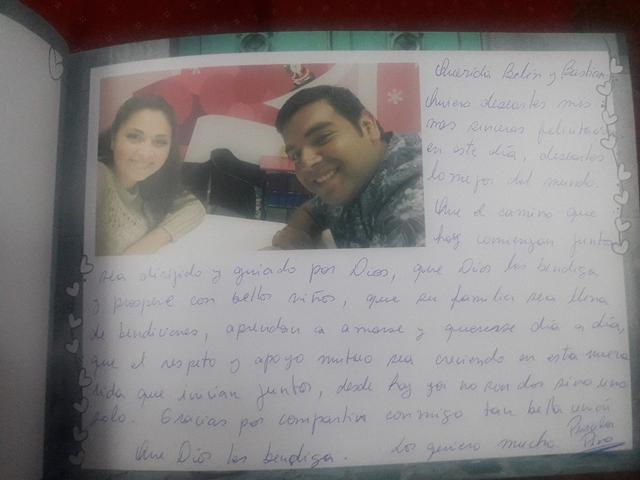 Querida Belén y Bastian,
Quiero desearles mis
mas sinceras felicitaciones
en este día, desearles
lo mejor del mundo.
Que el camino que
hoy comienzan juntos
sea dirijido y guiado por Dios, que Dios los bendiga
y prospere con bellos niños, que su familia sea llena
de bendiciones, aprendan a amarse y quererse día a día,
que el respeto y apoyo mutuo sea creciendo en esta nueva
vida que inician juntos, desde hoy ya no son dos sino uno
solo. Gracias por compartir conmigo tan bella unión
Que Dios los bendiga. Los quiero mucho.